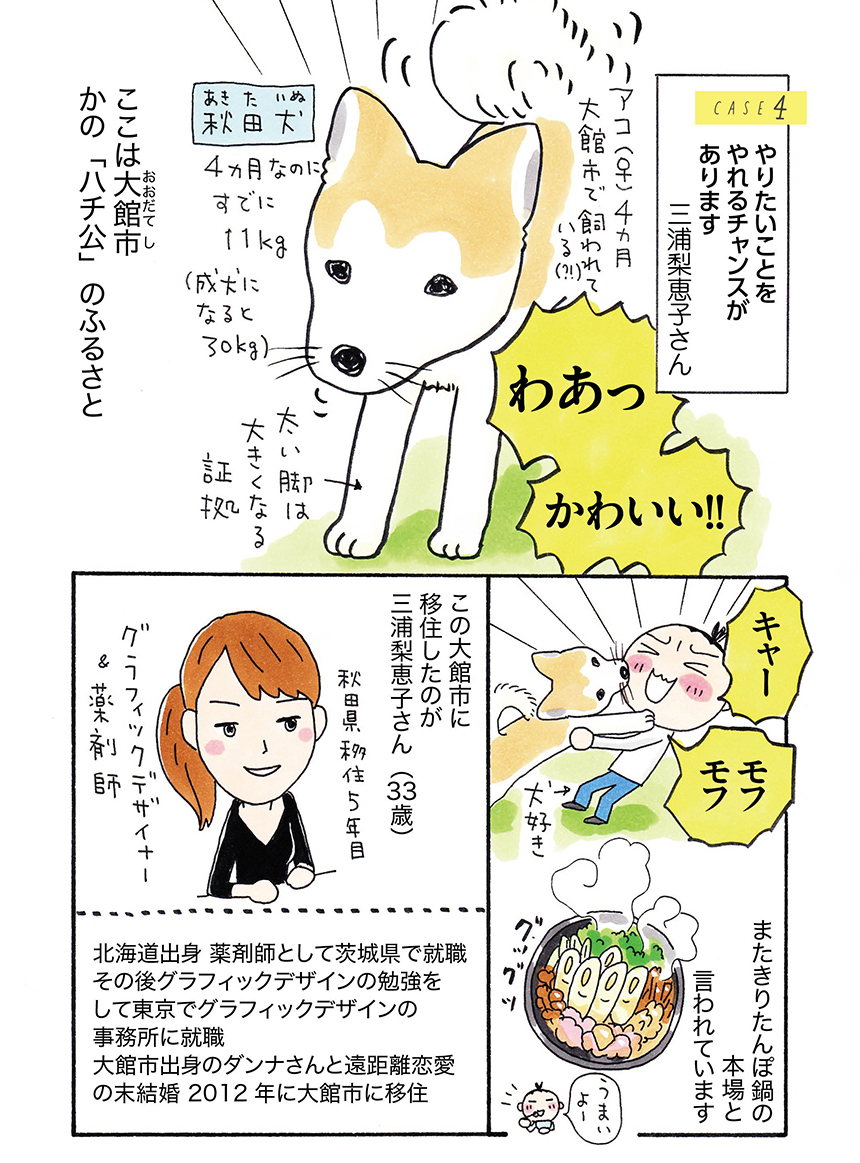 CASE 4
やりたいことを
やれるチャンスが
あります
三浦梨恵子さん
アコ(♀)4カ月
大館市で飼われて
いる(?!)
わあっ
かわいい!!
あきたいぬ
秋田犬
4カ月なのに
すでに
11kg
(成犬に
なると
30kg)
太い脚は
大きくなる
証拠
ここは大館市
おおだてし
かの「ハチ公」のふるさと
キャー
モフ
モフ
犬好き
またきりたんぽ鍋の
本場と
言われています
グッグツ
うまい
よ〜
この大館市に
移住したのが
三浦梨恵子さん(33歳)
秋田県移住5年目
グラフィックデザイナー
&薬剤師
北海道出身 薬剤師として茨城県で就職
その後グラフィックデザインの勉強を
して東京でグラフィックデザインの
事務所に就職
大館市出身のダンナさんと遠距離恋愛
の末結婚 2012年に大館市に移住